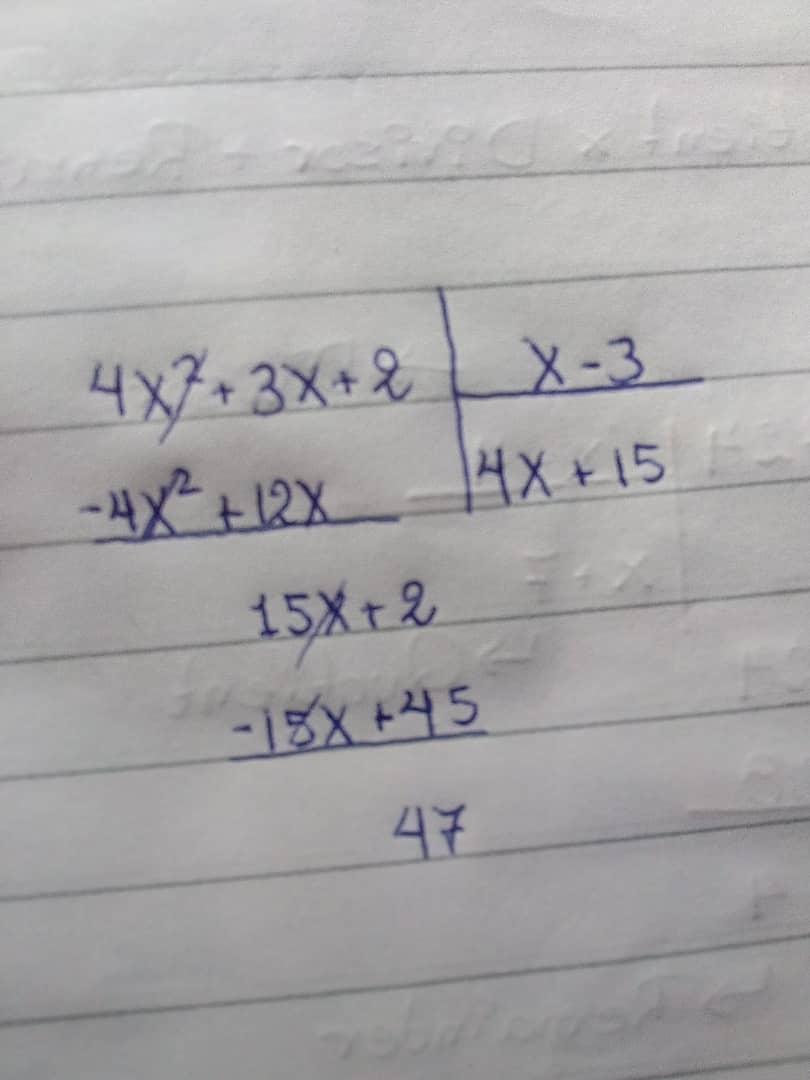 4x² + 3x + 2 | x - 3
-4x² + 12x | 4x + 15
15x + 2
-15x + 45
47